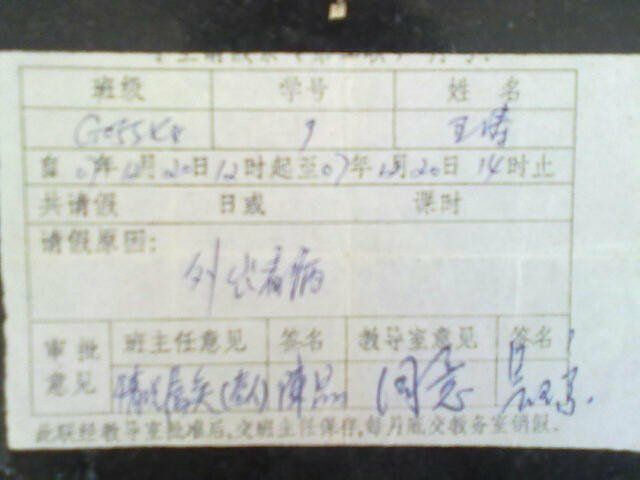 班级 学号 姓名
G055K8 7 王涛
自07年12月20日12时起至07年12月20日14时止
共请假 日或 课时
请假原因:
外出看病
审批 班主任意见 签名 教导室意见 签名
意见 情况属实 同意
此联经教导室批准后,交班主任保存,每月底交教务室销假.